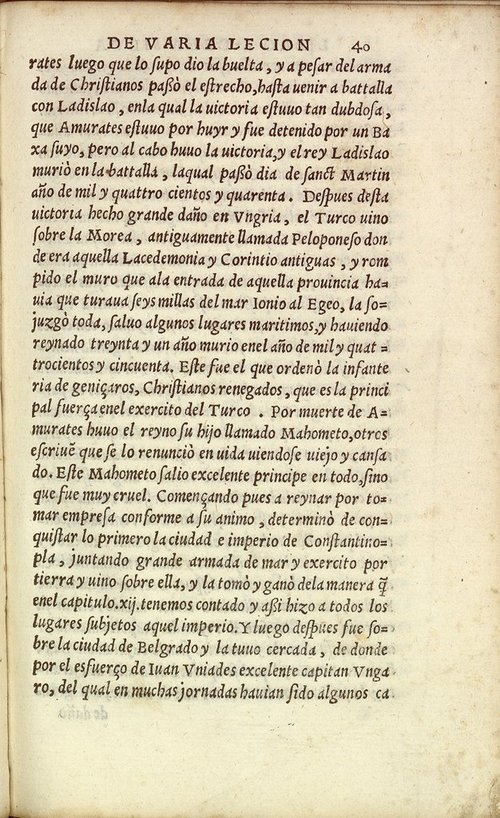 DE VARIA LECION 40
rates luego que lo supo dio la buelta, y a pesar del arma
da de Christianos passò el estrecho, hasta venir a battalla
con Ladislao, enla qual la uictoria estuuo tan dubdosa,
que Amurates estuuo por huyr y fue detenido por un Ba
xa suyo, pero al cabo huuo la uictoria, y el rey Ladislao
murió en la battalla, laqual passò dia de sanct Martin
año de mil y quattro cientos y quarenta. Despues desta
uictoria hecho grande daño en Vngria, el Turco uino
sobre la Morea, antiguamente llamada Peloponeso don
de era aquella Lacedemonia y Corintio antiguas, y rom
pido el muro que ala entrada de aquella prouincia ha=
uia que turaua seys millas del mar Ionio al Egeo, la so=
juzgò toda, saluo algunos lugares maritimos, y hauiendo
reynado treynta y un año murio enel año de mil y quat =
trocientos y cincuenta. Este fue el que ordenò la infante
ria de geniçaros, Christianos renegados, que es la princi
pal fuerça enel exercito del Turco. Por muerte de A=
murates huuo el reyno su hijo llamado Mahometo, otros
escriuē que se lo renunciò en uida uiendose uiejo y cansa
do. Este Mahometo salio excelente principe en todo, sino
que fue muy cruel. Començando pues a reynar por to=
mar empresa conforme a su animo, determinò de con=
quistar lo primero la ciudad e imperio de Constantino=
pla, juntando grande armada de mar y exercito por
tierra y uino sobre ella, y la tomò y ganò dela manera q̃
enel capitulo.xij.tenemos contado y assi hizo a todos los
lugares subjetos aquel imperio. Y luego despues fue so=
bre la ciudad de Belgrado y la tuuo cercada, de donde
por el esfuerço de Iuan Vniades excelente capitan Vnga
ro, del qual en muchas jornadas hauian sido algunos ca